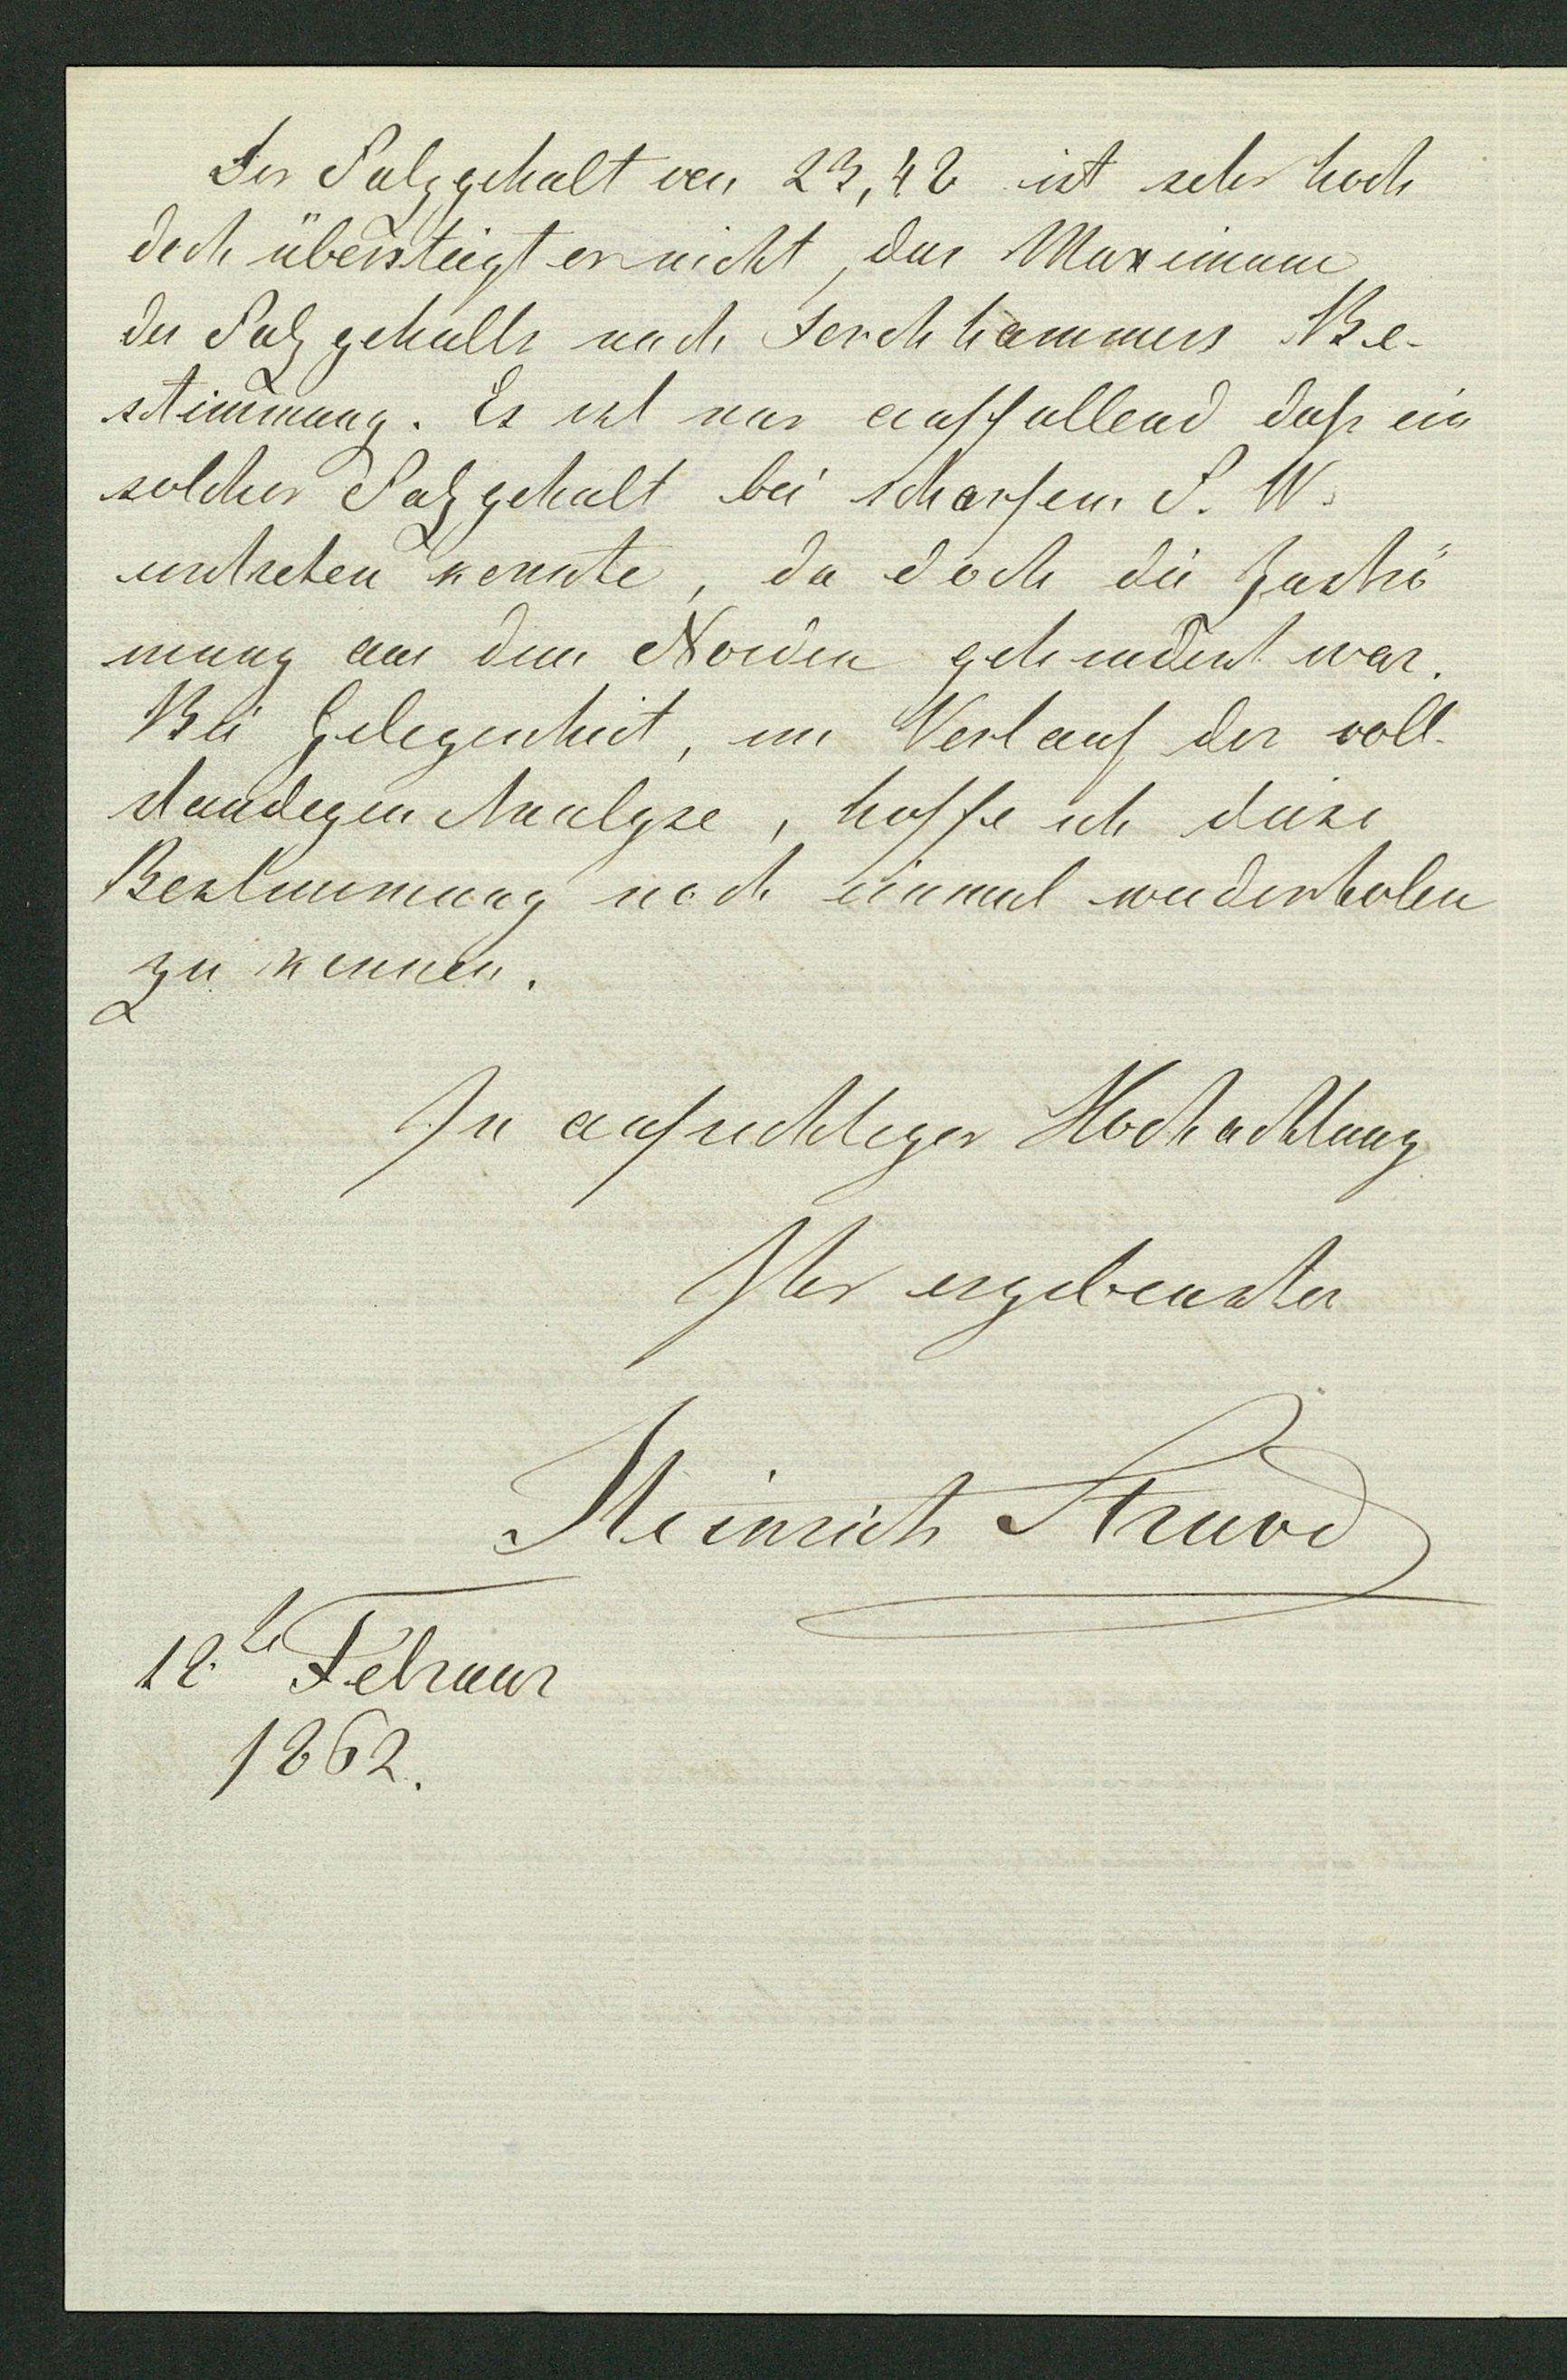 Der Salzgehalt von 23,48 ist sehr hoch
doch übersteigt er nicht, das Maximum
des Salzgehalts nach Forchhammers Be-
stimmung. Es ist nur auffallend daſs ein
solcher Salzgehalt bei scharfem S. W.
eintreten konnte, da doch die Zuströ
mung aus dem Norden gehindert war.
Bei Gelegenheit, im Verlauf der voll-
standigen Analyse, hoffe ich diese
Bestimmung noch einmal wiederholen
zu konnen.
In aufrichtiger Hochachtung
Ihr ergebenster
Heinrich Struve
18. Februar
1862.